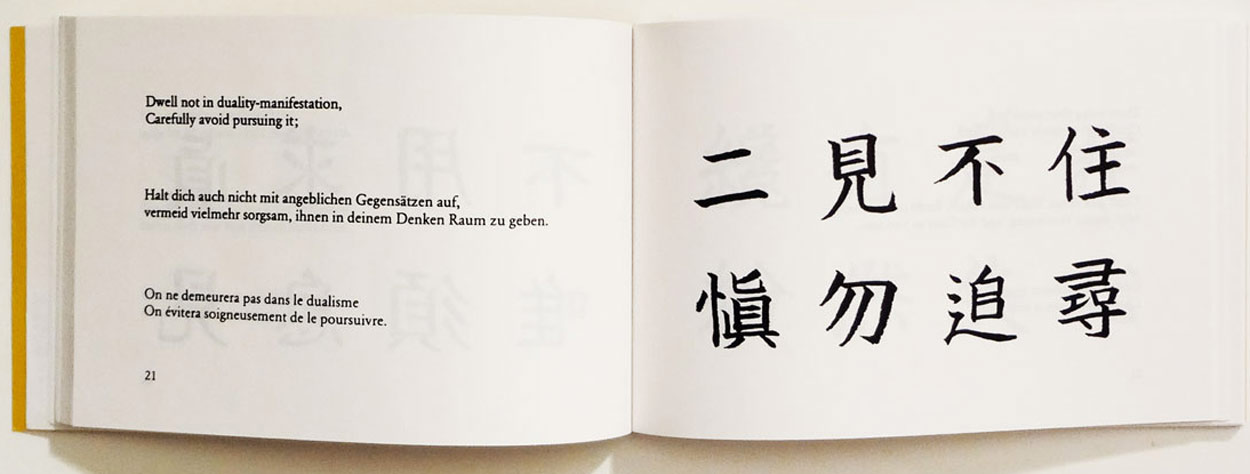 Dwell not in duality-manifestation,
Carefully avoid pursuing it;
Halt dich auch nicht mit angeblichen Gegensätzen auf,
vermeid vielmehr sorgsam, ihnen in deinem Denken Raum zu geben.
On ne demeurera pas dans le dualisme
On évitera soigneusement de le poursuivre.
21
二見不住
慎勿追尋